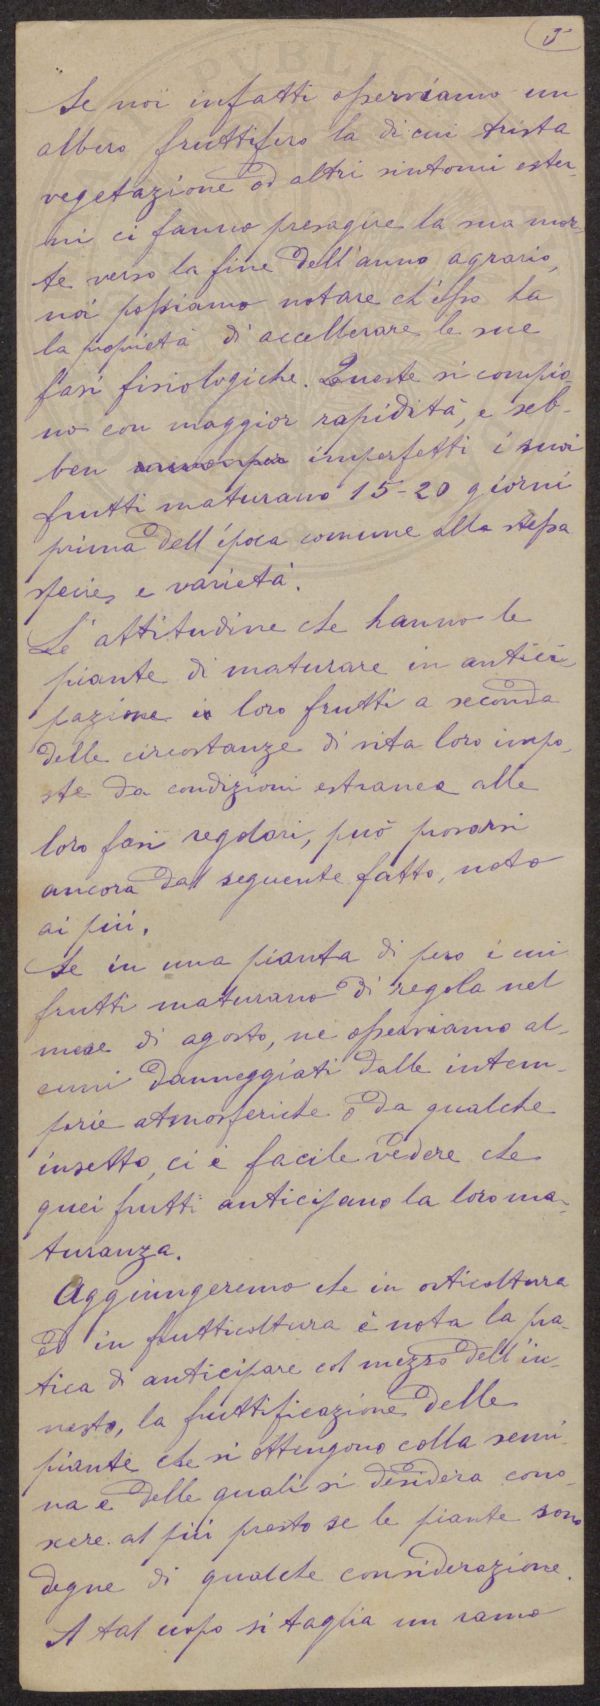 5
Se noi infatti osserviamo un
albero fruttifero la di cui trista
vegetazione od altri sintomi ester-
ni ci fanno presagire la sua mor-
te verso la fine dell'anno agrario,
noi possiamo notare ch'esso ha
la proprietà di accellerare le sue
fasi fisiologiche. Queste si compio-
no con maggior rapidità, e seb-
ben imperfetti i suoi
frutti maturano 15-20 giorni
prima dell'época comune alla stessa
specie, e varietà.
L'attitudine che hanno le
piante di maturare in antici-
pazione i loro frutti a seconda
delle circostanze di vita loro impo-
ste da condizioni estranee alle
loro fasi regolari, può provarsi
ancora dal seguente fatto, noto
ai più.
Se in una pianta di pero i cui
frutti maturano di regola nel
mese di agosto, ne osserviamo al-
cuni danneggiati dalle intem-
perie atmosferiche o da qualche
insetto, ci è facile vedere che
quei frutti anticipano la loro ma-
turanza.
Aggiungeremo che in orticoltura
ed in frutticoltura è nota la pra-
tica di anticipare col mezzo dell'in-
nesto, la fruttificazione delle
piante che si ottengono colla semi-
na e delle quali si desidera cono-
scere al più presto se le piante sono
degne di qualche considerazione.
A tal uopo si taglia un ramo
PUBLIC